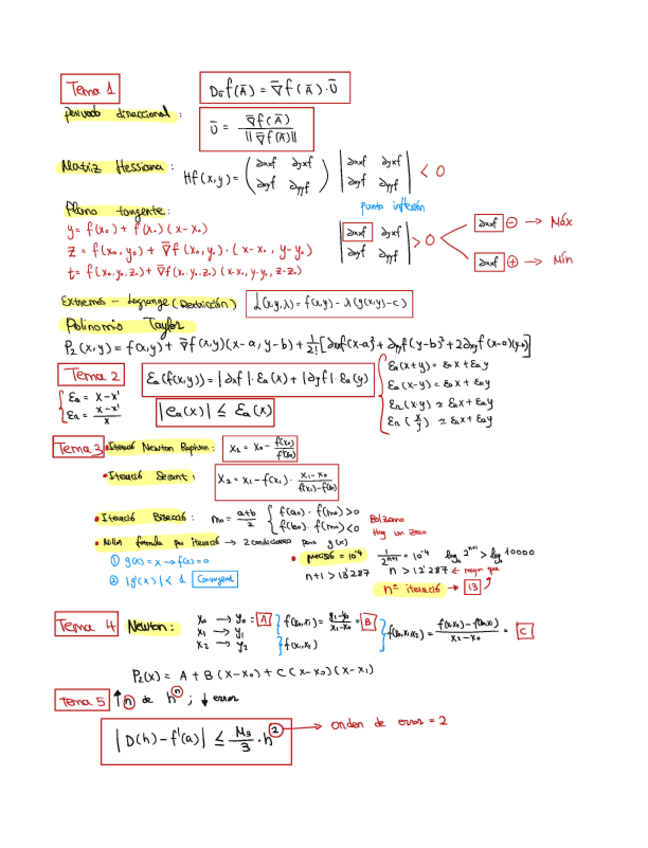 Tema 1
D_ū f(Ā) = ∇̄f(Ā)·Ū
Derivada direccional:
Ū = ∇̄f(Ā) / ||∇̄f(Ā)||
Matriz Hessiana: Hf(x,y) = (∂xxf ∂yxf
∂xyf ∂yyf)
|∂xxf ∂yxf
∂xyf ∂yyf| < 0
Punto inflexión
Plano tangente:
y = f(x₀) + f'(x₀)(x-x₀)
z = f(x₀,y₀) + ∇̄f(x₀,y₀)·(x-x₀, y-y₀)
t = f(x₀,y₀,z₀) + ∇̄f(x₀,y₀,z₀)(x-x₀, y-y₀, z-z₀)
|∂xxf ∂yxf
∂xyf ∂yyf| > 0
∂xxf ⊖ → Máx
∂xxf ⊕ → Mín
Extremos - Lagrange (Restricción) L(x,y,λ) = f(x,y) - λ(g(x,y)-c)
Polinomio Taylor
P₂(x,y) = f(x,y) + ∇̄f(x,y)(x-a, y-b) + 1/2! [∂xxf(x-a)² + ∂yyf(y-b)² + 2∂xyf(x-a)(y-b)]
Tema 2
Ea = x - x'
Er = x-x' / x
Ea(f(x,y)) = |∂xf|·Ea(x) + |∂yf|·Ea(y)
|ea(x)| ≤ Ea(x)
Ea(x+y) = Eax + Eay
Ea(x-y) = Eax + Eay
Er(x·y) ≃ Erx + Ery
Er(x/y) ≃ Erx + Ery
Tema 3
• Iteració Newton Raphson: x₂ = x₀ - f(x₀)/f'(x₀)
• Iteració Secant: x₂ = x₁ - f(x₁) · x₁-x₀ / f(x₁)-f(x₀)
• Iteració Bisecció: m₀ = a+b / 2 { f(a₀)·f(m₀) > 0
f(b₀)·f(m₀) < 0
Bolzano
Hay un zero
formula per iteració → 2 condiciones para g(x)
① g(x) = x → f(x) = 0
② |g'(x)| < 1 Convergent
• precisió = 10⁻⁴ 1/2ⁿ⁺¹ = 10⁻⁴ log₂ 2ⁿ⁺¹ > log₂ 10000
n+1 > 13'287 n > 12'287 ← mayor que
nº iteració → 13
Tema 4 Newton:
x₀ → y₀ = A
x₁ → y₁
x₂ → y₂
f(x₀,x₁) = y₁-y₀ / x₁-x₀ = B
f(x₁,x₂)
f(x₀,x₁,x₂) = f(x₁,x₂) - f(x₀,x₁) / x₂-x₀ = C
P₂(x) = A + B(x-x₀) + C(x-x₀)(x-x₁)
Tema 5 ↑ n de hⁿ; ↓ error
|D(h) - f'(a)| ≤ M₃/3 · h² → orden de error = 2